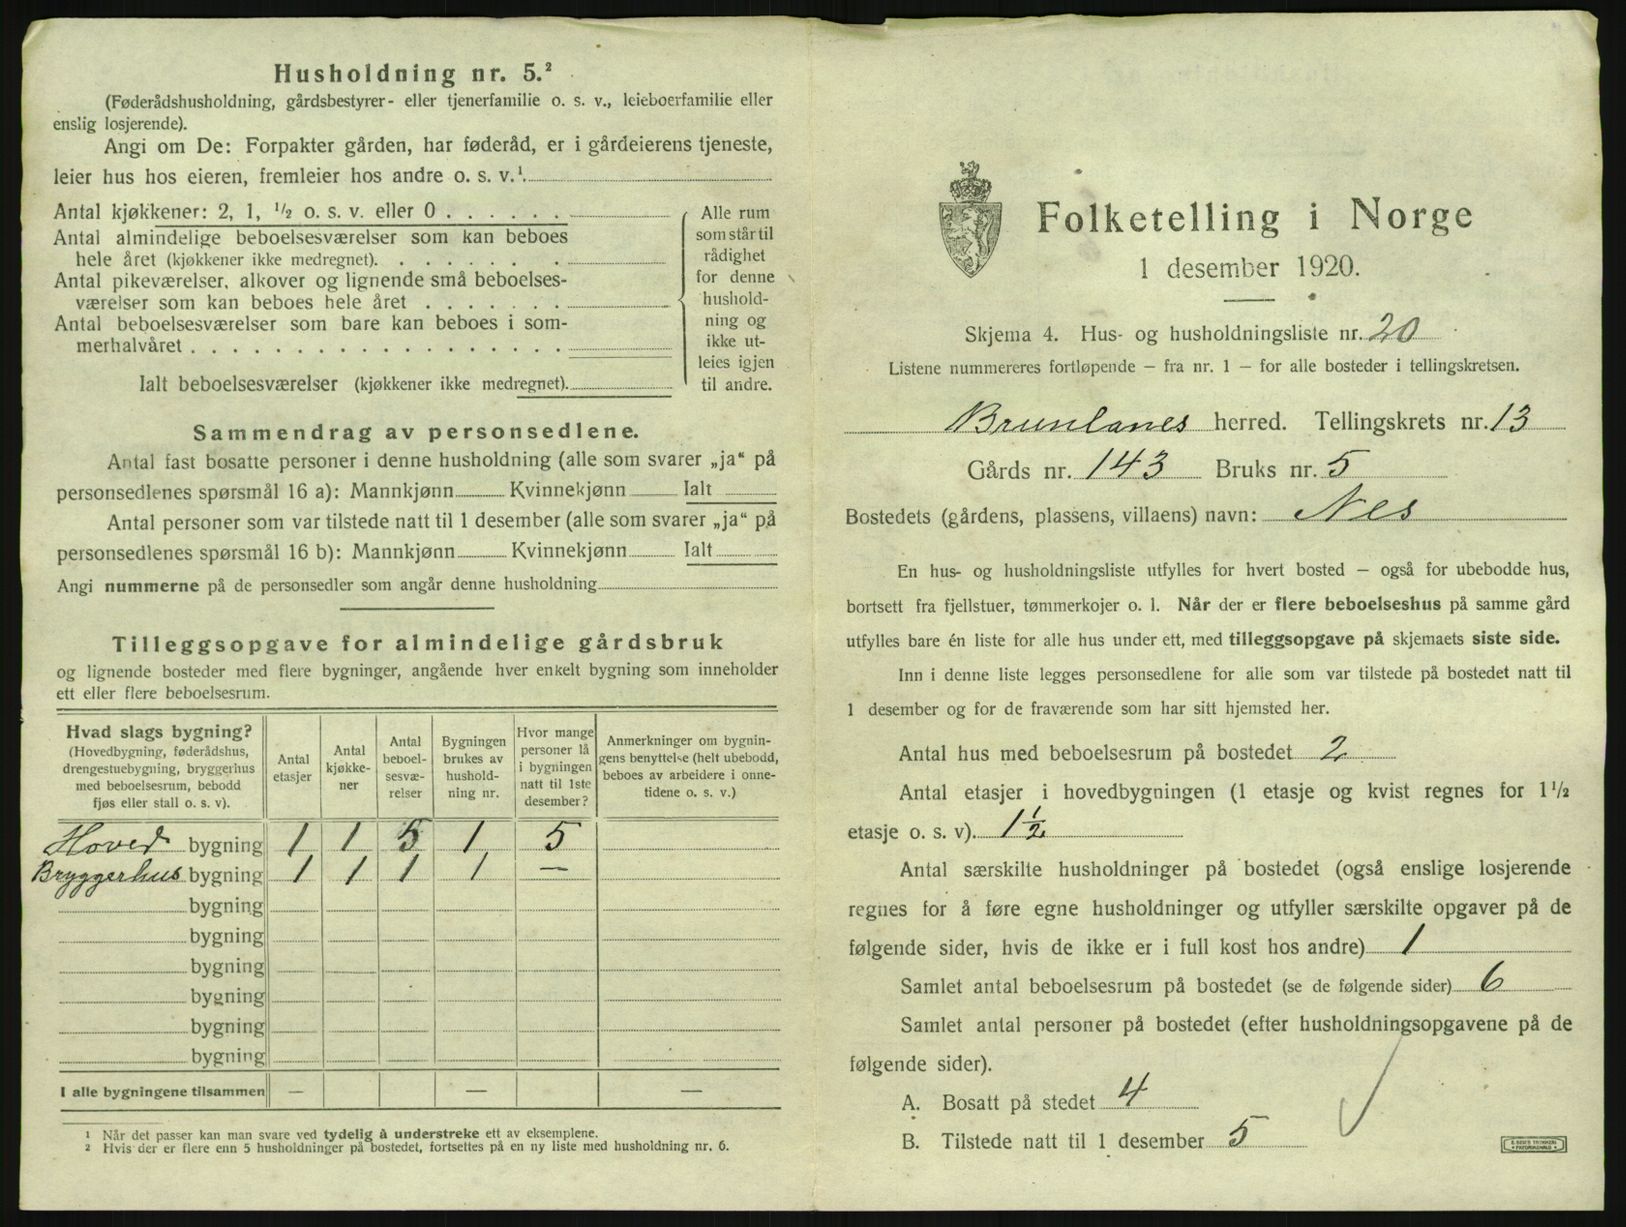 Husholdning nr. 5.²
(Føderådshusholdning, gårdsbestyrer- eller tjenerfamilie o. s. v., leieboerfamilie eller
enslig losjerende).
Angi om De: Forpakter gården, har føderåd, er i gårdeierens tjeneste,
leier hus hos eieren, fremleier hos andre o. s. v.¹
Antal kjøkkener: 2, 1, ½ o. s. v. eller 0 . . . . . .
Antal almindelige beboelsesværelser som kan beboes
hele året (kjøkkener ikke medregnet). . . . . . . .
Antal pikeværelser, alkover og lignende små beboelses-
værelser som kan beboes hele året . . . . . . .
Antal beboelsesværelser som bare kan beboes i som-
merhalvåret . . . . . . . . . . . . . . . . . .
Ialt beboelsesværelser (kjøkkener ikke medregnet).
Alle rum
som står til
rådighet
for denne
hushold-
ning og
ikke ut-
leies igjen
til andre.
Sammendrag av personsedlene.
Antal fast bosatte personer i denne husholdning (alle som svarer „ja“ på
personsedlenes spørsmål 16 a): Mannkjønn Kvinnekjønn Ialt
Antal personer som var tilstede natt til 1 desember (alle som svarer „ja“ på
personsedlenes spørsmål 16 b): Mannkjønn Kvinnekjønn Ialt
Angi nummerne på de personsedler som angår denne husholdning
Tilleggsopgave for almindelige gårdsbruk
og lignende bosteder med flere bygninger, angående hver enkelt bygning som inneholder
ett eller flere beboelsesrum.
Hvad slags bygning?
(Hovedbygning, føderådshus,
drengestuebygning, bryggerhus
med beboelsesrum, bebodd
fjøs eller stall o. s. v).
Antal
etasjer
Antal
kjøkke-
ner
Antal
beboel-
sesvæ-
relser
Bygningen
brukes av
hushold-
ning nr.
Hvor mange
personer lå
i bygningen
natt til 1ste
desember?
Anmerkninger om bygnin-
gens benyttelse (helt ubebodd,
beboes av arbeidere i onne-
tidene o. s. v.)
Hoved bygning 1 1 5 1 5
Bryggerhus bygning 1 1 1 1 —
bygning
bygning
bygning
bygning
bygning
bygning
I alle bygningene tilsammen — — —
¹ Når det passer kan man svare ved tydelig å understreke ett av eksemplene.
² Hvis der er flere enn 5 husholdninger på bostedet, fortsettes på en ny liste med husholdning nr. 6.
Folketelling i Norge
1 desember 1920.
Skjema 4. Hus- og husholdningsliste nr. 20
Listene nummereres fortløpende — fra nr. 1 — for alle bosteder i tellingskretsen.
Brunlanes herred. Tellingskrets nr. 13
Gårds nr. 143 Bruks nr. 5
Bostedets (gårdens, plassens, villaens) navn: Nes
En hus- og husholdningsliste utfylles for hvert bosted — også for ubebodde hus,
bortsett fra fjellstuer, tømmerkojer o. l. Når der er flere beboelseshus på samme gård
utfylles bare én liste for alle hus under ett, med tilleggsopgave på skjemaets siste side.
Inn i denne liste legges personsedlene for alle som var tilstede på bostedet natt til
1 desember og for de fraværende som har sitt hjemsted her.
Antal hus med beboelsesrum på bostedet 2
Antal etasjer i hovedbygningen (1 etasje og kvist regnes for 1½
etasje o. s. v). 1½
Antal særskilte husholdninger på bostedet (også enslige losjerende
regnes for å føre egne husholdninger og utfyller særskilte opgaver på de
følgende sider, hvis de ikke er i full kost hos andre) 1
Samlet antal beboelsesrum på bostedet (se de følgende sider) 6
Samlet antal personer på bostedet (efter husholdningsopgavene på de
følgende sider).
A. Bosatt på stedet 4
B. Tilstede natt til 1 desember 5